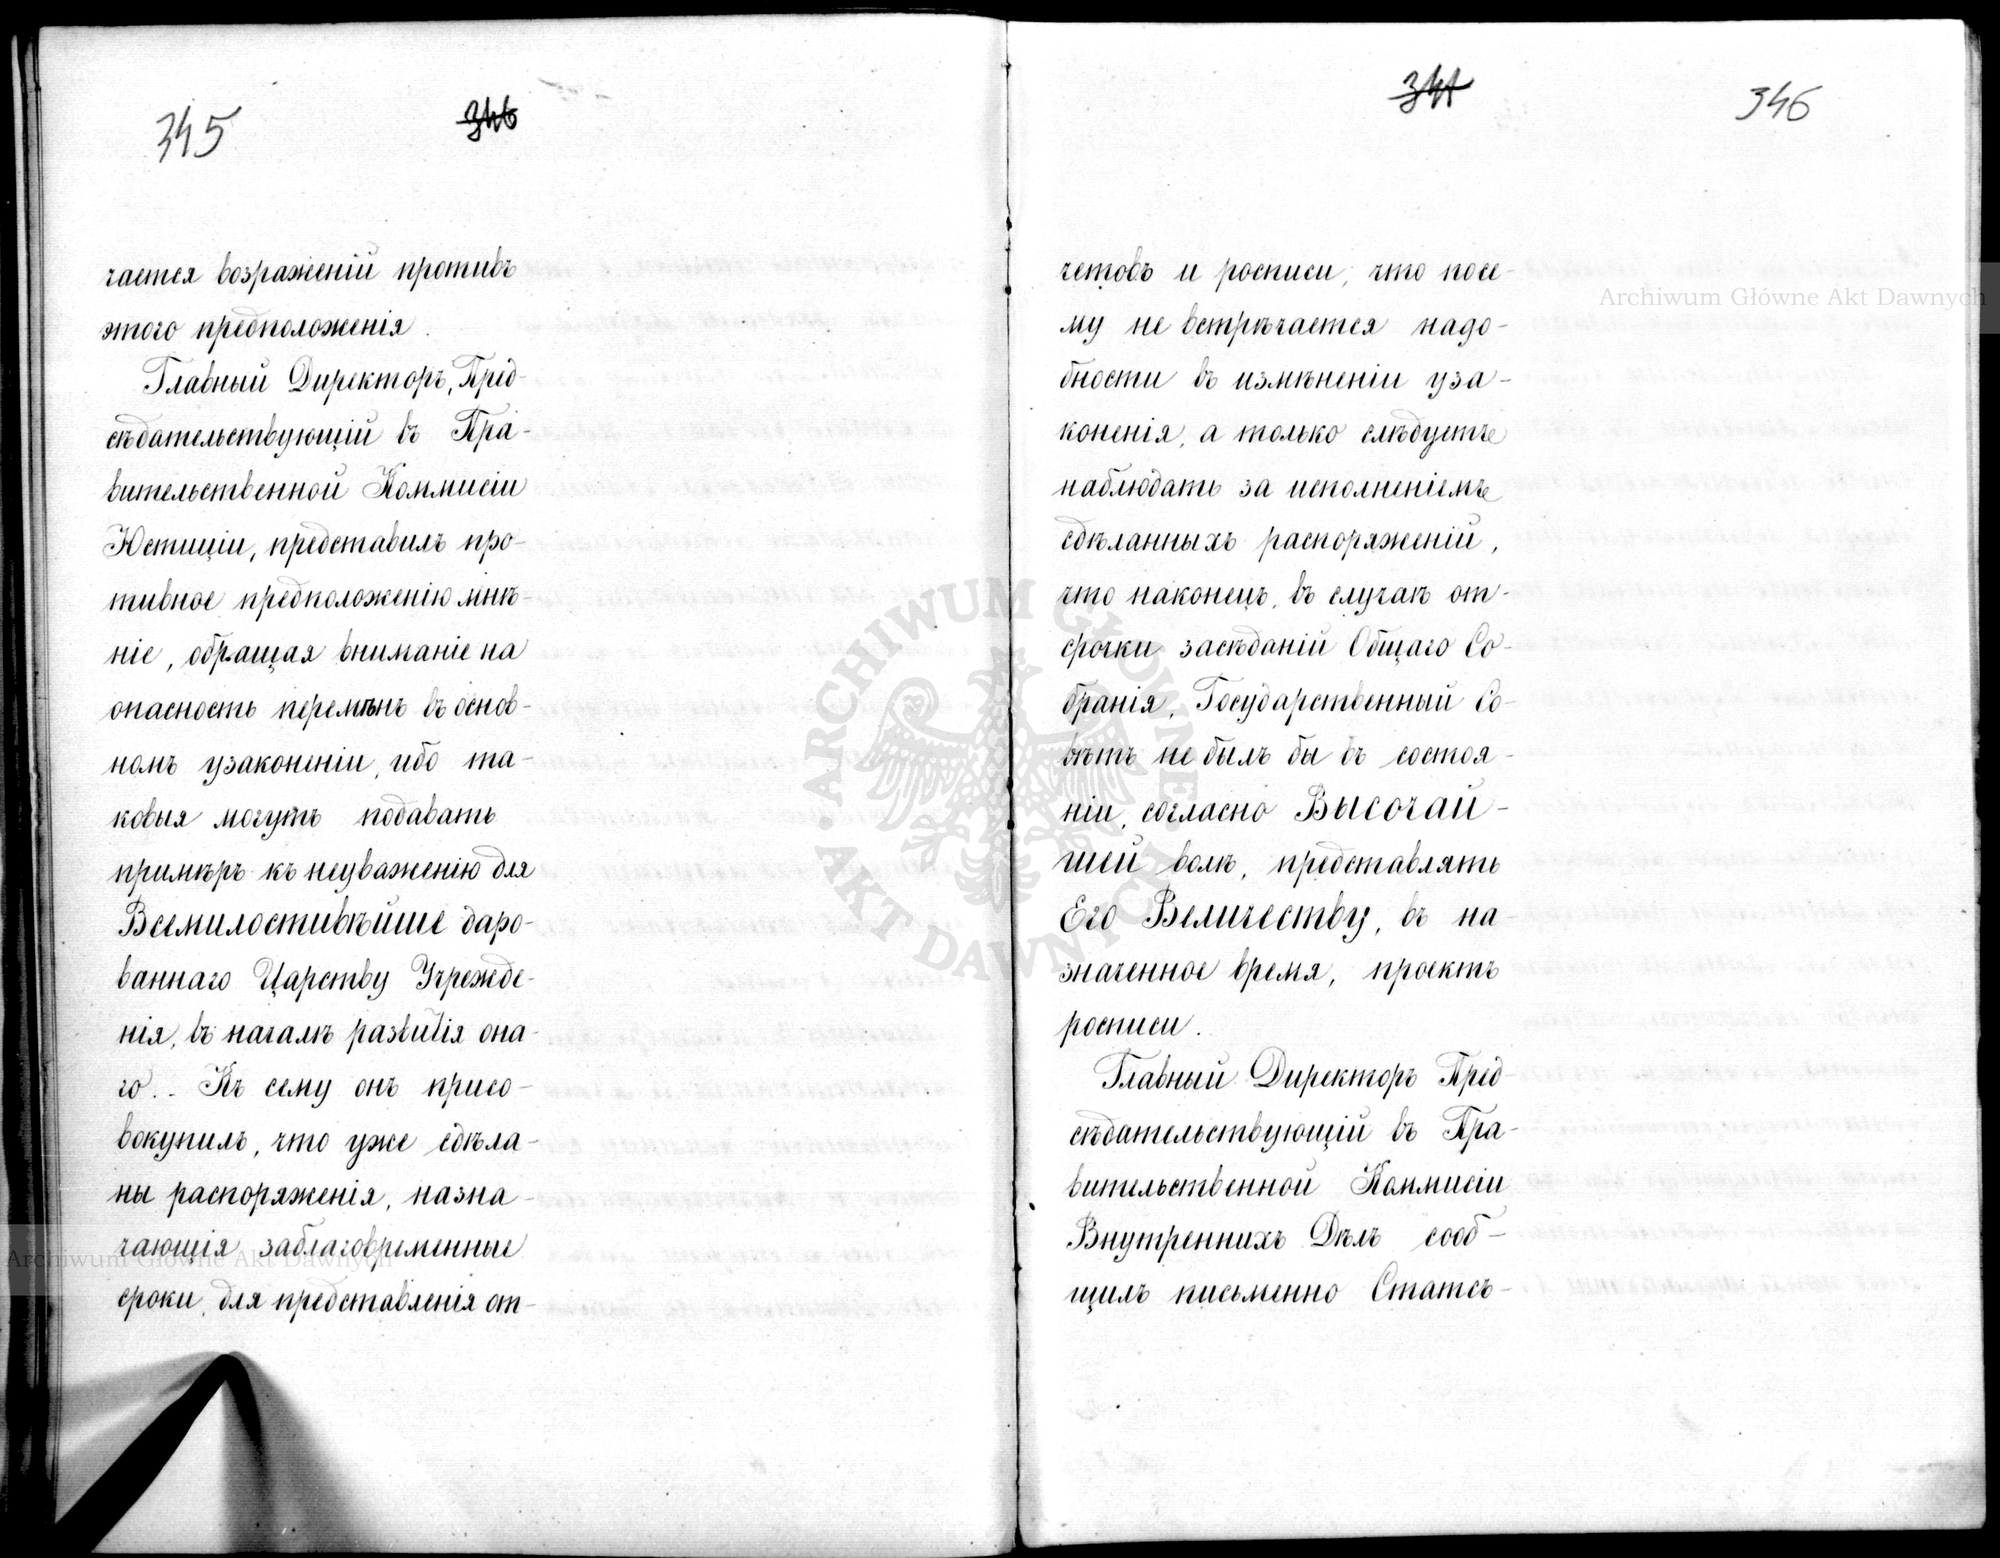 345
346
чается возраженій противъ
этого предположенія.
Главный Директоръ, Пред-
сѣдательствующій въ Пра-
вительственной Коммисіи
Юстиціи, представилъ про-
тивное предположенію мнѣ-
ніе, обращая вниманіе на
опасность перемѣнъ въ основ-
номъ узаконеніи, ибо та-
ковыя могутъ подавать
примѣръ къ неуваженію для
Всемилостивѣйше даро-
ваннаго Царству Учрежде-
нія, въ началѣ развитія она-
го. - Къ сему онъ присо-
вокупилъ, что уже сдѣла-
ны распоряженія, назна-
чающія заблаговременные
сроки, для представленія от-
346
четовъ и росписи; что посе-
му не встрѣчается надо-
бности въ измѣненіи уза-
коненія, а только слѣдуетъ
наблюдать за исполненіемъ
сдѣланныхъ распоряженій,
что наконецъ, въ случаѣ от-
срочки засѣданій Общаго Со-
бранія, Государственный Со-
вѣтъ не былъ бы въ состоя-
ніи, согласно Высочай-
шей волѣ, представлять
Его Величеству, въ на-
значенное время, проектъ
росписи.
Главный Директоръ Пред-
сѣдательствующій въ Пра-
вительственной Коммисіи
Внутреннихъ Дѣлъ сооб-
щилъ письменно Статсъ-
Archiwum Główne Akt Dawnych
Archiwum Główne Akt Dawnych
ARCHIWUM GŁÓWNE
AKT DAWNYCH